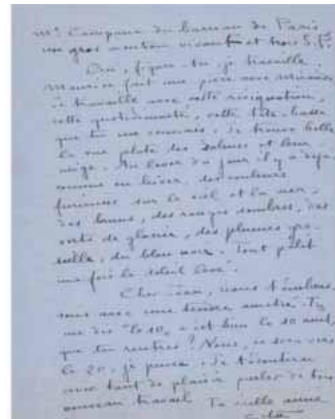 Me Campana du barreau de Paris
un gros mouton vivant et trois
Oui, figure-toi, je travaille.
Maurice fait une pièce avec
je travaille avec cette résignation,
cette quotidienneté, cette tête basse
que tu me connais. Je trouve belle
la vue plate des Salines et leur
neige. Au lever du jour il y a déjà,
comme en hiver, des couleurs
furieuses sur le ciel et la mer,
des bruns, des rouges sombres, des
verts de glacier, des plumes
du bleu noir. Tout pâlit
une fois le soleil levé.
Cher Jean, nous t'embras
sons avec une tendre amitié. Tu
me dis "le 10, c'est bien le 10 août,
que tu rentres? Nous, ce sera vers
le 20, je pense. Je t'écouterai
avec tant de plaisir parler de ton
nouveau travail. Ta vieille amie